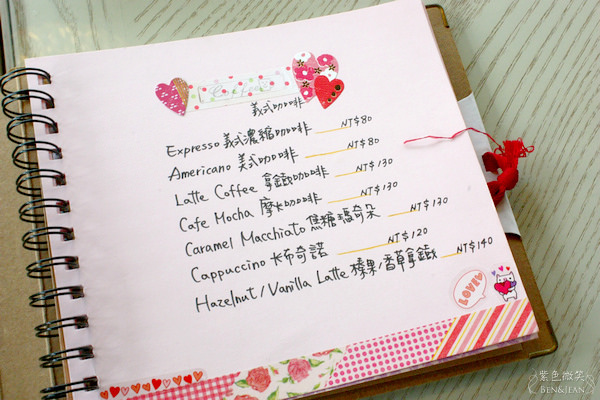 義式咖啡
Expresso 義式濃縮咖啡 NT$80
Americano 美式咖啡 NT$80
Latte Coffee 拿鐵咖啡 NT$130
Cafe Mocha 摩卡咖啡 NT$130
Caramel Macchiato 焦糖瑪奇朵 NT$130
Cappuccino 卡布奇諾 NT$120
Hazelnut/Vanilla Latte 榛果/香草拿鐵 NT$140
LOVE
紫色微笑
BEN&JEAN